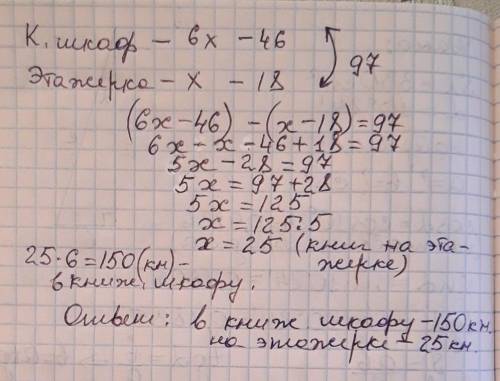 К. шкаф – 6х – 46
Этажерка – х – 18
97
(6х – 46) – (х – 18) = 97
6х – х – 46 + 18 = 97
5х – 28 = 97
5х = 97 + 28
5х = 125
х = 125 : 5
х = 25 (книг на эта-
жерке)
25 · 6 = 150 (кн) –
в книж. шкафу.
Ответ: в книж шкафу – 150 кн.
на этажерке – 25 кн.